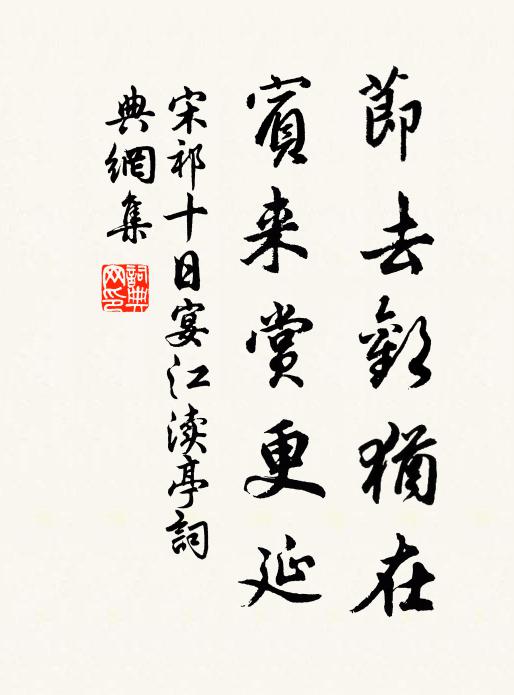 節去歡猶在
賓来賞更延
宋祁十日宴江渎亭詞
典網集
詞典网印